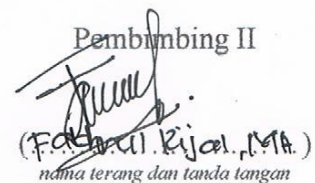 Pembimbing II
(Fakhrul Rijal, MA)
nama terang dan tanda tangan